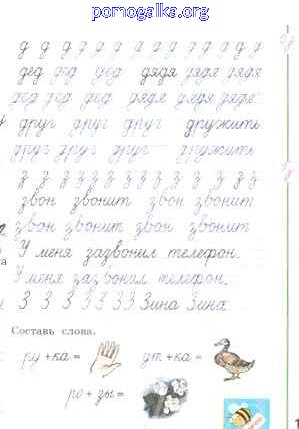 pomogalka.org
д д д д д д д д д д д д д д
дед дед дед дядя дядя дядя
дед дед дед дядя дядя дядя
друг друг друг дружить
друг друг друг дружить
з з з з з з з з з з з з з з
звон звонит звон звонит
звон звонит звон звонит
У меня зазвонил телефон.
У меня зазвонил телефон.
З З З З З З З Зина Зина
Составь слова.
ру + ка = ут + ка =
ро + зы =
1